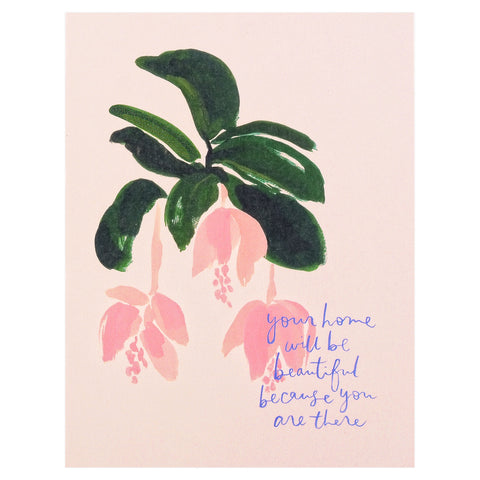 your home
will be
beautiful
because you
are there